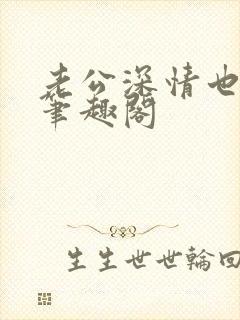 老公深情也
笔趣阁
生生世世輪回